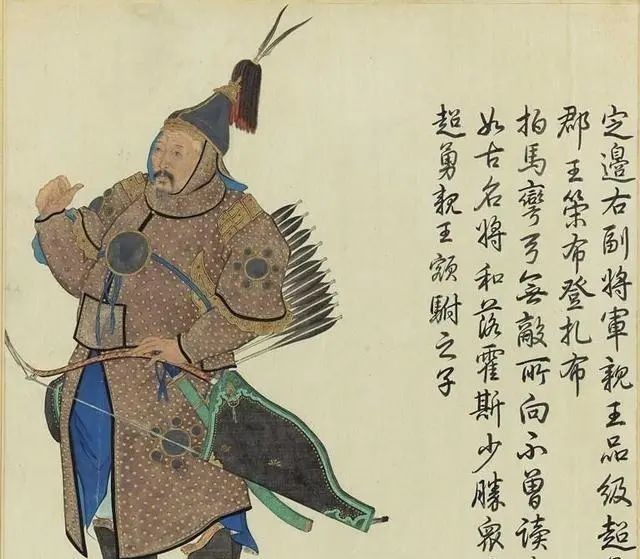 定邊右副將軍親王品級超
郡王策布登扎布
拍馬彎弓無敵所向不曾讀
如古名將和落霍斯少勝衆
超勇親王額駙之子